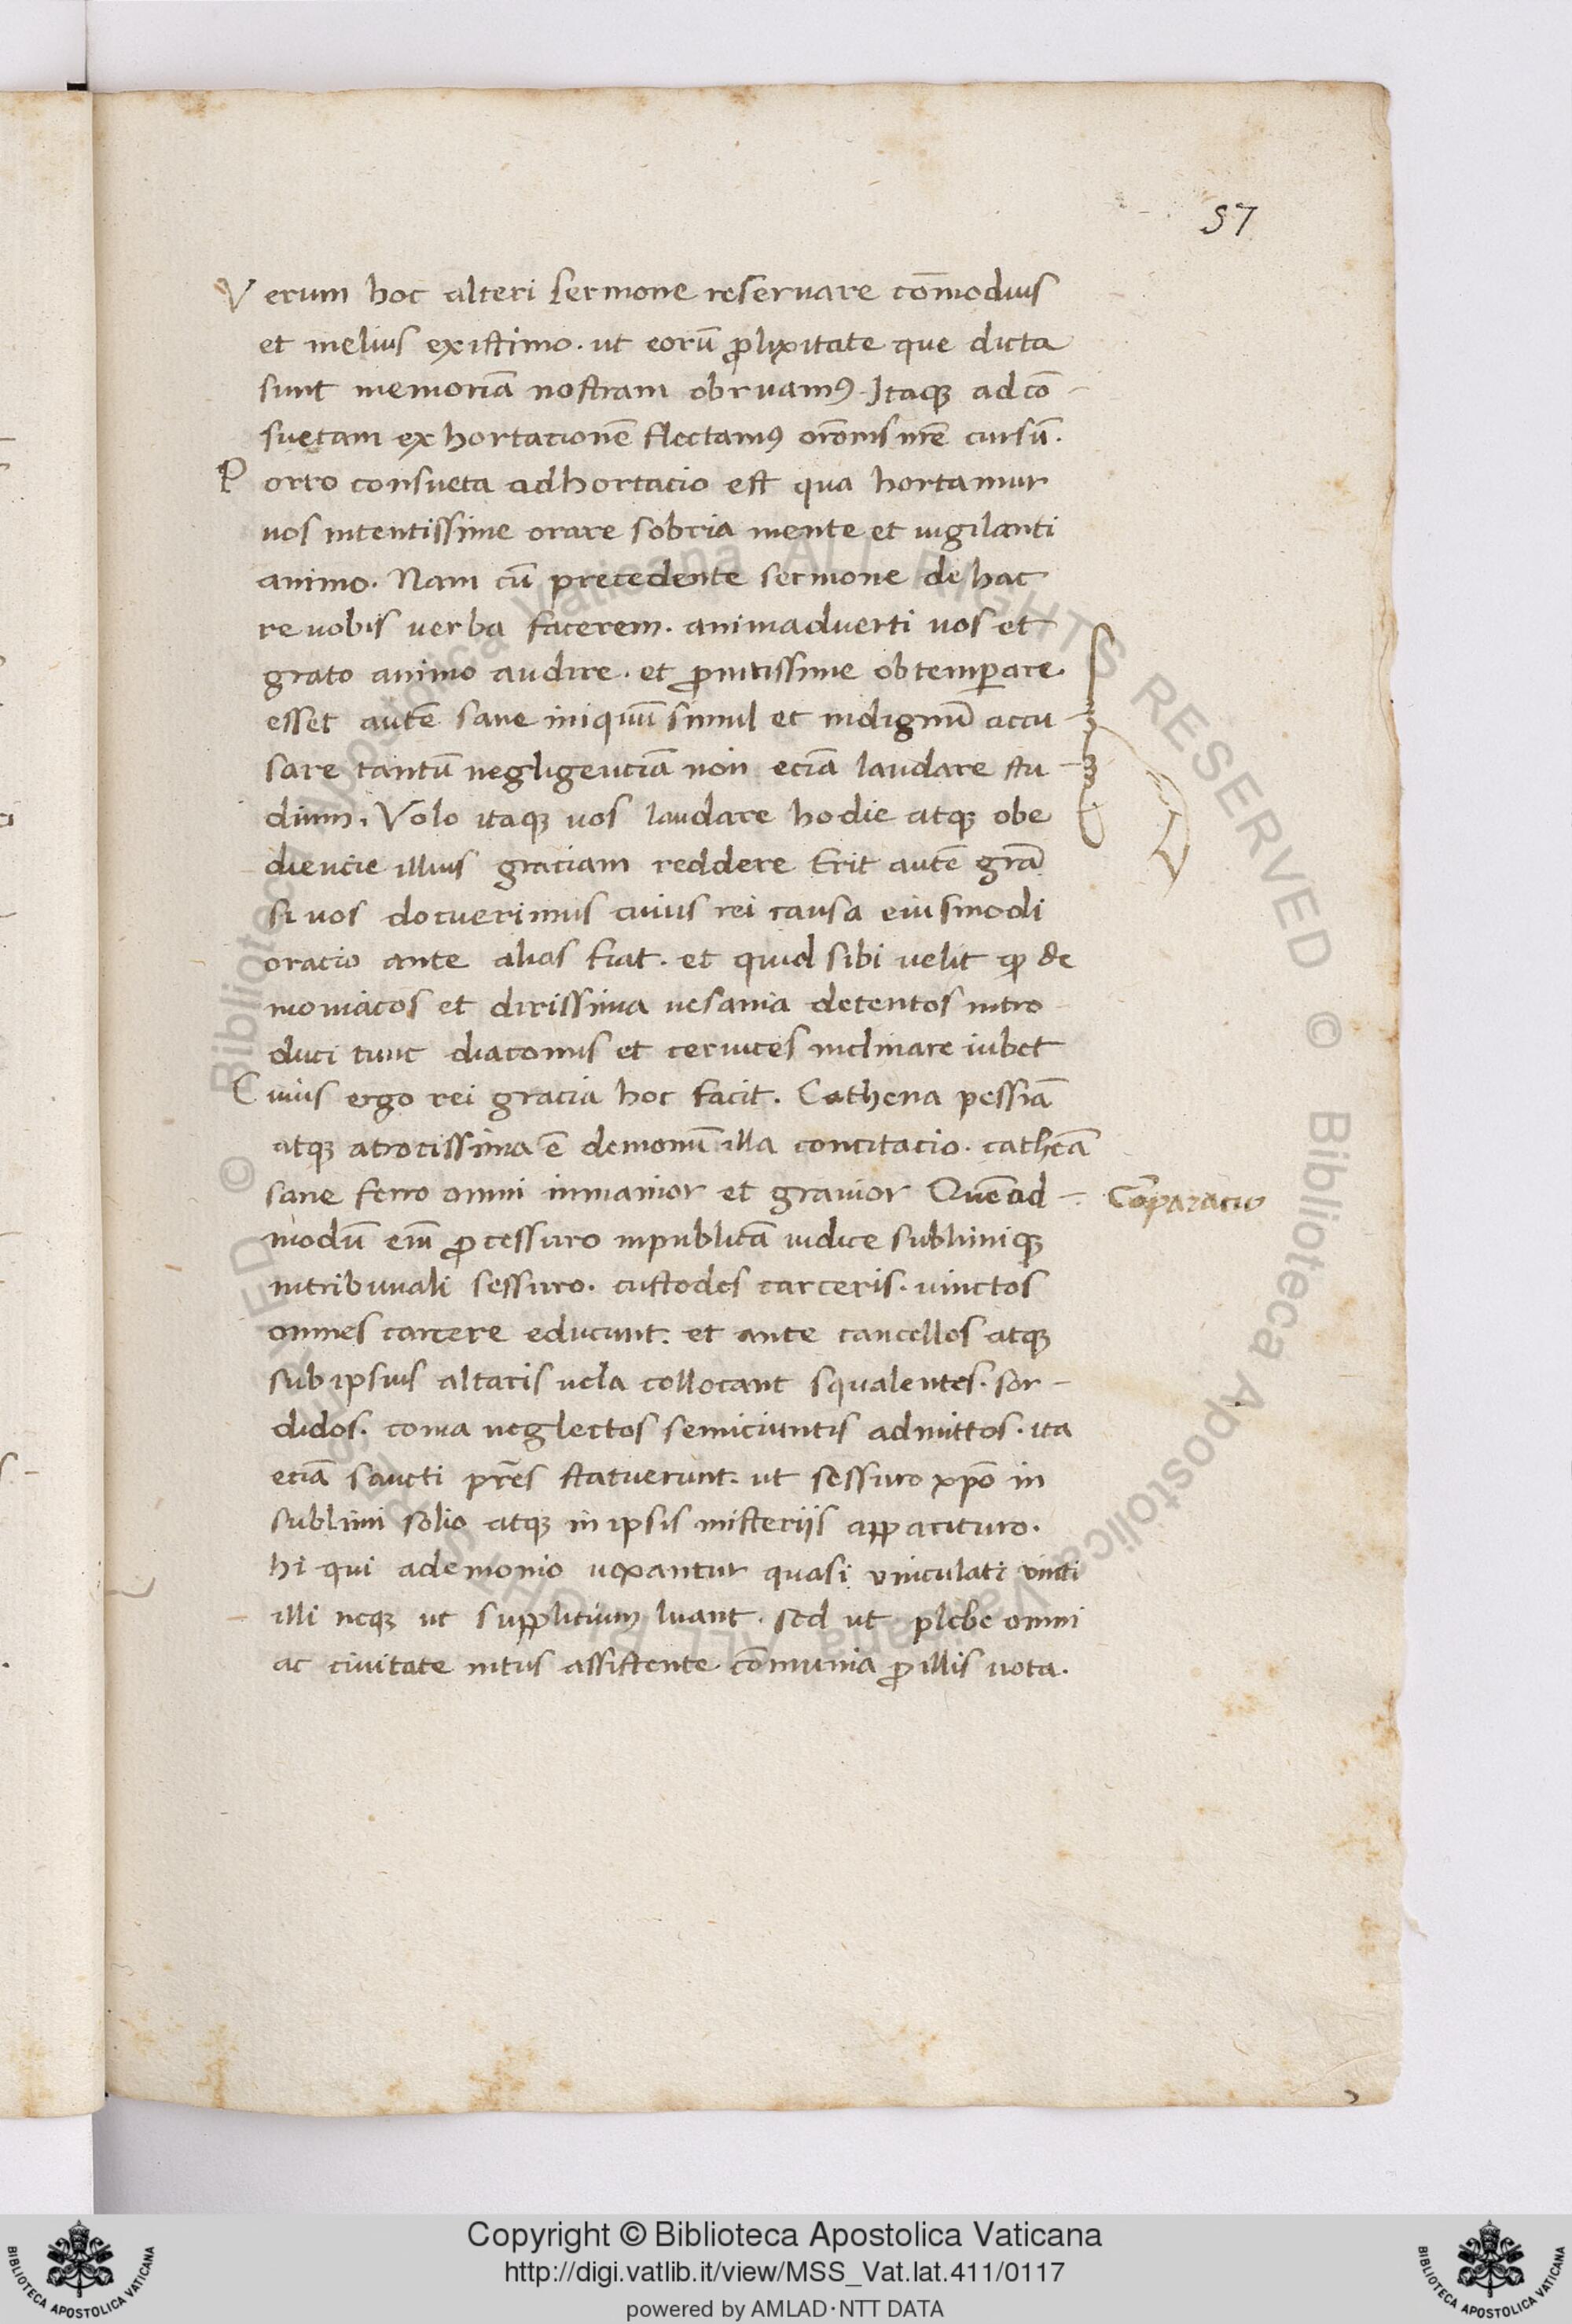 57
Verum hoc alteri sermone reseruare cōmodius
et melius existimo. ut eorū ꝓlixitate que dicta
sunt memoriā nostram obruamꝰ. Itaqꝫ ad cō-
suetam exhortacionē flectamꝰ orōnis nr̄e cursū.
Porro consueta adhortacio est qua hortamur
uos intentissime orare sobria mente et uigilanti
animo. Nam cū precedente sermone de hac
re uobis uerba facerem. animaduerti uos et
grato animo audire. et ꝓmtissime obtemꝑare.
esset autē sane iniquū simul et indignū accu-
sare tantū negligenciā non eciā laudare stu-
dium. Volo itaqꝫ uos laudare hodie atqꝫ obe
diencie illius graciam reddere Erit autē grā
si uos docuerimus cuius rei causa eiusmodi
oracio ante alias fiat. et quid sibi uelit ꝙ de
moniacos et dirissima uesania detentos intro-
duci tunc diaconus et ceruices inclinare iubet
Cuius ergo rei gracia hoc facit. Cathena pessiā
atqꝫ atrocissima ē demonū illa concitacio. catheā
sane ferro omni inmanior et grauior Quēad-
Cōparacio
modū eiū ꝓcessuro inpublicā iudice sublimiqꝫ
intribunali sessuro. custodes carceris. uinctos
omnes carcere educunt. et ante cancellos atqꝫ
sub ipsius altaris uela collocant squalentes. sor-
didos. coma neglectos semiciuntis admittos. ita
eciā sancti pr̄es statuerunt. ut sessuro xp̄o in
sublimi solio atqꝫ in ipsis misteriis apparituro.
hi qui ademonio uexantur quasi uinculati uincti
illi neqꝫ ut supplicium luant. sed ut plebe omni
ac ciuitate intus assistente cōmunia ꝓ illis uota.
© Biblioteca Apostolica Vaticana ALL RIGHTS RESERVED © Biblioteca Apostolica Vaticana ALL RIGHTS RESERVED
Copyright © Biblioteca Apostolica Vaticana
http://digi.vatlib.it/view/MSS_Vat.lat.411/0117
powered by AMLAD·NTT DATA
BIBLIOTECA APOSTOLICA VATICANA
BIBLIOTECA APOSTOLICA VATICANA